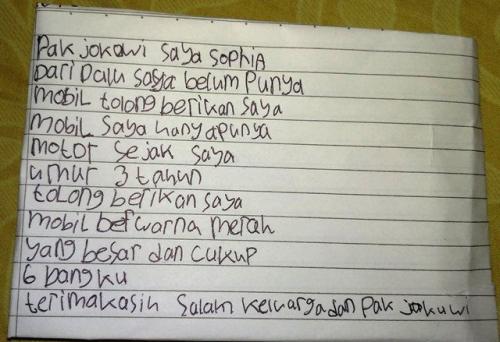 Pak jokowi saya sophia
Dari Palu saya belum Punya
mobil tolong berikan saya
mobil saya hanya punya
motor sejak saya
umur 3 tahun
tolong berikan saya
mobil berwarna merah
yang besar dan cukup
6 bangku
terimakasih salam keluarga dan pak jokowi